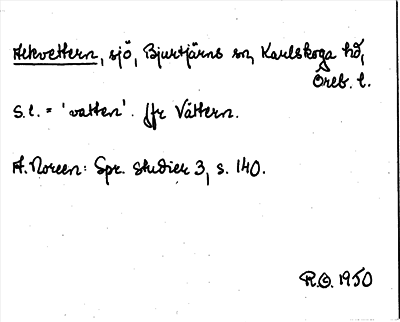 Alkvettern, sjö, Bjurtjärns sn, Karlskoga hd,
Öreb. l.
S.l. = 'vatten'. Jfr Vättern.
A. Noreen: Spr. studier 3, s. 140.
R.O. 1950